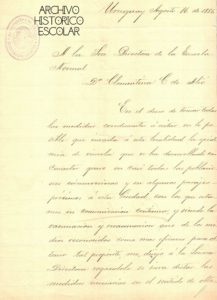 ARCHIVO
HISTÓRICO
ESCOLAR
Uruguay, Agosto 16 de 1886
A la Sra. Directora de la Escuela
Normal
Da. Clementina C. de Alió
En el deseo de tomar todas
las medidas conducentes á evitar en lo po
sible que en esta localidad la epidemia
de viruela que se ha desarrollado con
carácter grave en casi todas las poblacio
nes circunvecinas y en algunos parajes
próximos á esta Ciudad, con los que esta
mos en comunicación contínua, y siendo la
vacunación y revacunación uno de los me
dios reconocidos como mas eficaces para
el caso, me dirijo á la Señora
Directora rogándole se sirva dictar las
medidas necesarias en el sentido de